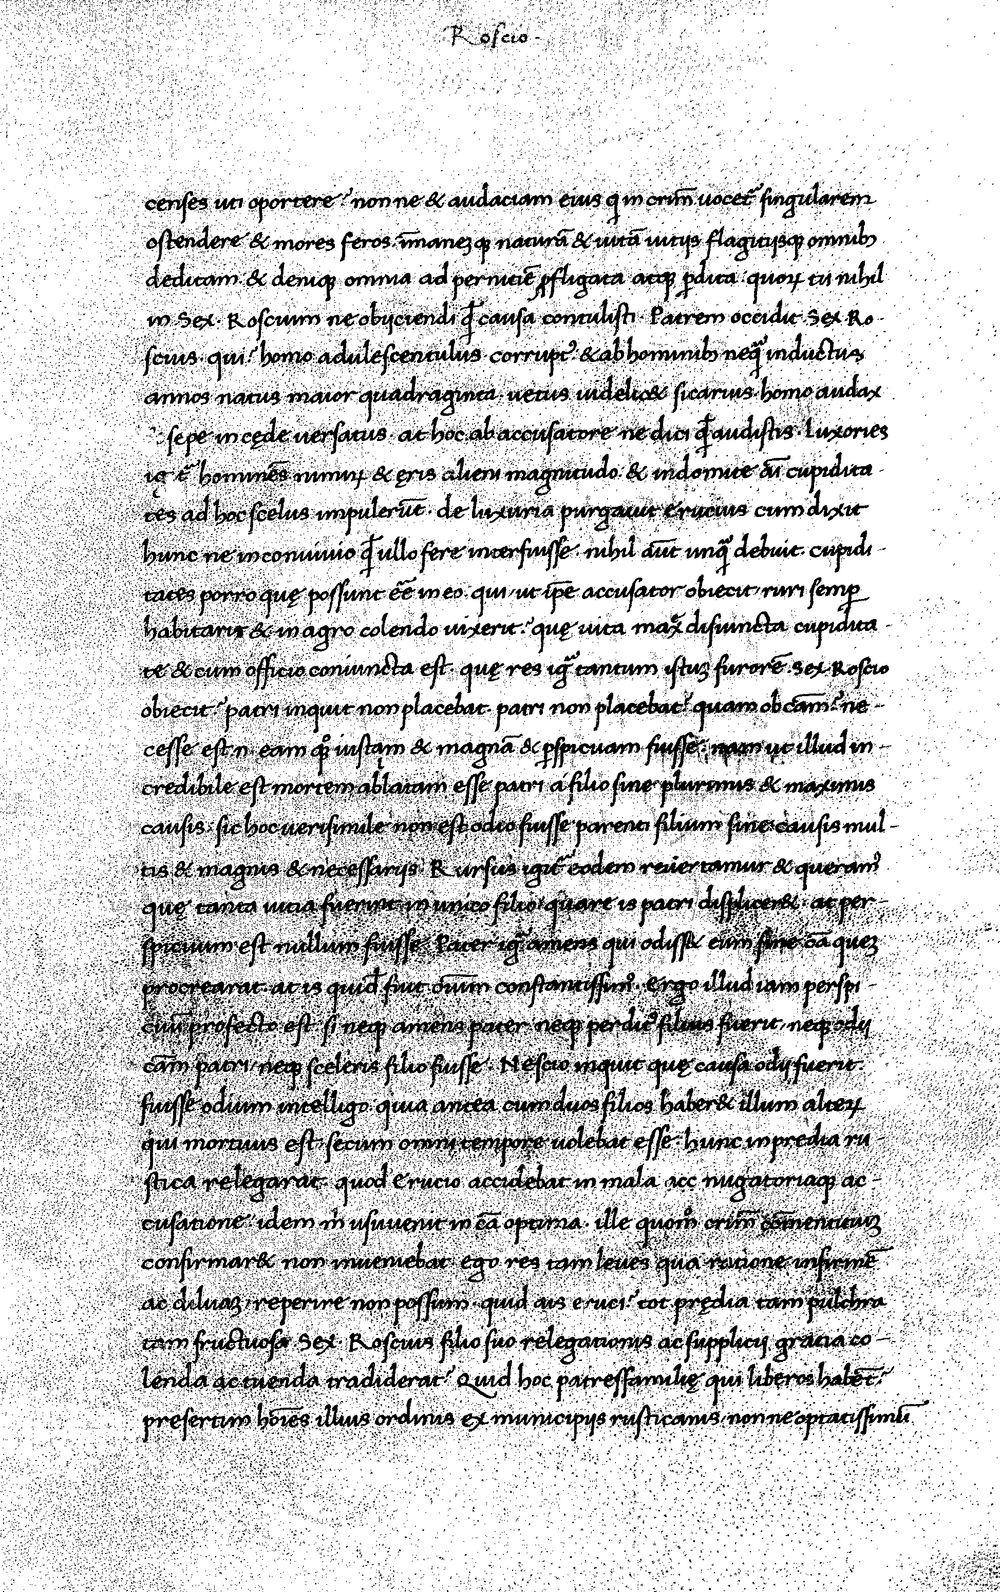 Roscio.
censes uti oportere? non ne & audaciam eius q̄ in crim̄ vocet̄ singularem
ostendere & mores feros. īmanēqꝫ naturā & uitā uitijs flagitijsqꝫ omnibꝫ
deditam. & deniqꝫ omnia ad perniciē ꝓfligata atqꝫ ꝑdita. quoꝝ tū nihil
in Sex. Roscium ne obijciendi qͥdē causa contulisti. Patrem occidit Sex Ro-
scius. qui? homo adulescentulus corruptꝰ & ab hominibꝫ neqͣ̄ inductus
annos natus maior quadraginta. uetus uidelic& sicarius homo audax
sepe in cęde uersatus. at hoc ab accusatore ne dici qͥdē audistis. Luxories
igͥt̄ hominēs nimiꝝ & ęris alieni magnitudo & indomite aī cupidita-
tes ad hoc scelus impulerūt. de luxuria purgauit erucius cum dixit
hunc ne in conuiuio qͥdē ullo fere interfuisse. nihil aūt unqͣ̄ debuit. cupidi-
tates porro quę possunt eē̄ in eo. qui, ut ip̄e accusator obiecit, ruri semꝑ
habitarit & in agro colendo uixerit? quę uita max̄ disiuncta cupidita-
te & cum officio coniuncta est. quę res igͥt̄ tantum istuꝫ furorē Sex Roscio
obiecit? patri inquit non placebat. patri non placebat? quam ob cām? ne-
cesse est .n. eam qͦqꝫ iustam & magnā & ꝑspicuam fuisse. nam ut illud in-
credibile est mortem ablatam esse patri a filio sine plurimis & maximis
causis. sic hoc uerisimile non est odio fuisse parenti filium sine causis mul-
tis & magnis & necessarijs. Rursus igit̄ eodem reuertamur & queramꝰ
quę tanta uitia fuerint in unico filio quare is patri displicer&. at per-
spicuum est nullum fuisse. Pater igͥt̄ amens qui odiss& eum sine cā queꝫ
procrearat. at is quidē fuit oīum constantissimꝰ. Ergo illud iam perspi-
cuū profecto est. si neqꝫ amens pater neqꝫ perditꝰ filius fuerit, neqꝫ odij
cām patri, neqꝫ sceleris filio fuisse. Nescio inquit quę causa odij fuerit.
fuisse odium intelligo. quia antea cum duos filios haber& illum alteꝝ
qui mortuus est. secum omni tempore uolebat esse. hunc in predia ru-
stica relegarat. quod erucio accidebat in mala acc nugatoriaqꝫ ac-
cusatione, idem m̄ usuuenit in cā optima. ille quomō crim̄ cōmenticiuꝫ
confirmar& non inueniebat. ego res tam leues qua ratione infirmē
ac diluaꝫ, reperire non possum. quid ais eruci? tot prędia tam pulchra
tam fructuosa Sex. Roscius filio suo relegationis ac supplicij gratia co-
lenda ac tuenda tradiderat? Quid hoc patresfamilię qui liberos habēt?
presertim hoīes illius ordinis ex municipijs rusticanis, non ne optatissimū